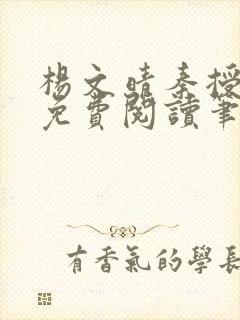 楊文晴秦授
免費閱讀筆
有香氣的學長